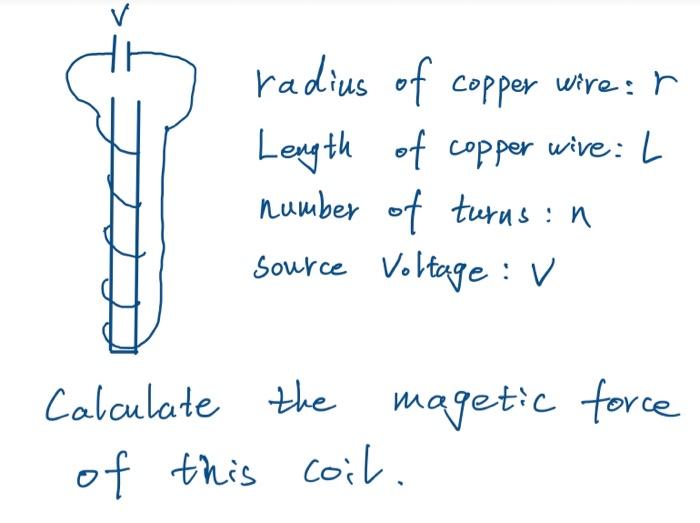 V
radius of copper wire: r
Length of copper wire: L
number of turns: n
Source Voltage: V
Calculate the magetic force
of this coil.